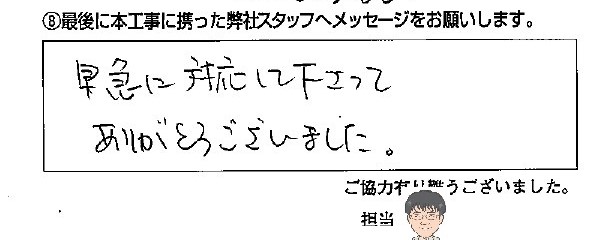 ⑧最後に本工事に携った弊社スタッフへメッセージをお願いします。
早急に対応して下さって
ありがとうございました。
ご協力有り難うございました。
担当